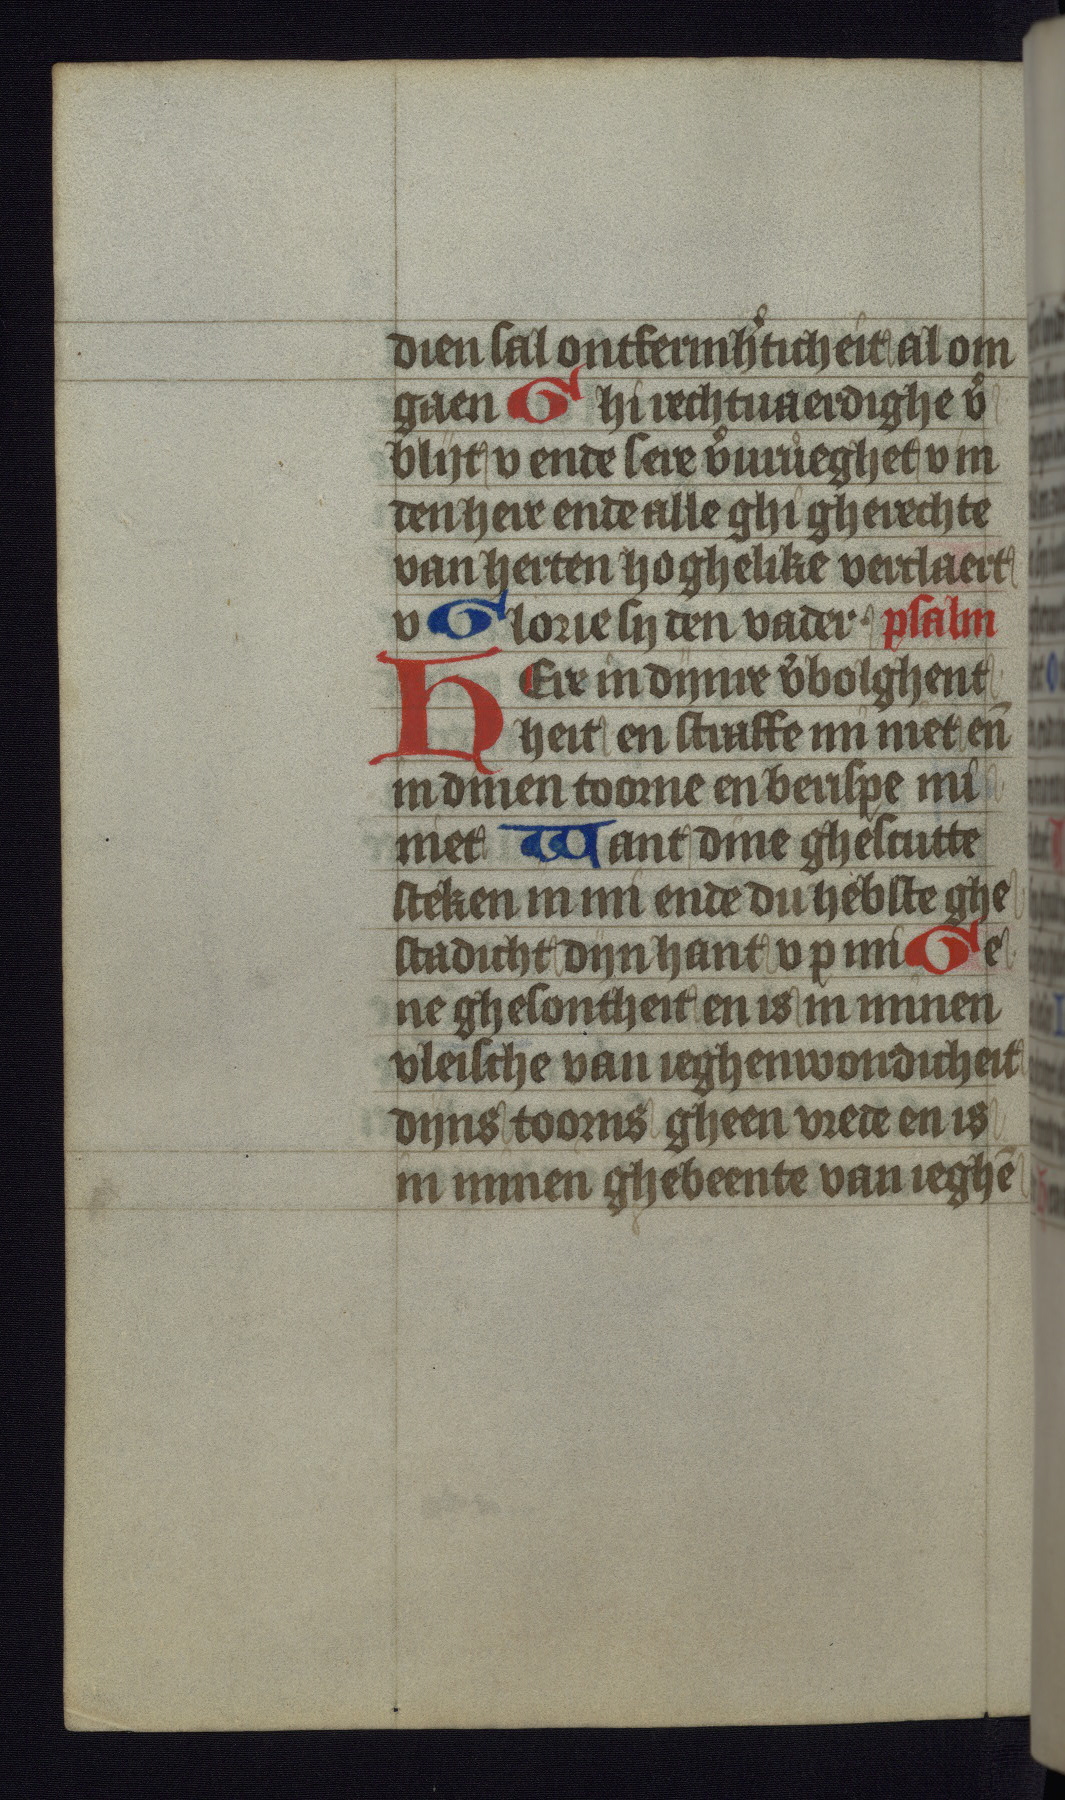 dien sal ontfermh'ticheit al om
gaen Ghi rechtuaerdighe v'
blijt v ende sere v'vrueghet v in
den heere ende alle ghi gherechte
van herten hoghelike verclaert
v Glorie sy den vader · psalm
HEere in dijnre v'bolghent
heit en straffe mi niet eñ
in dinen toorne en berispe mi
niet Want dine ghescutte
steken in mi ende du hebste ghe
stadicht dijn hant vp mi Ge
ne ghesontheit en is in minen
vleische van ieghenwordicheit
dijns toorns gheen vrede en is
in minen ghebeente van ieghē